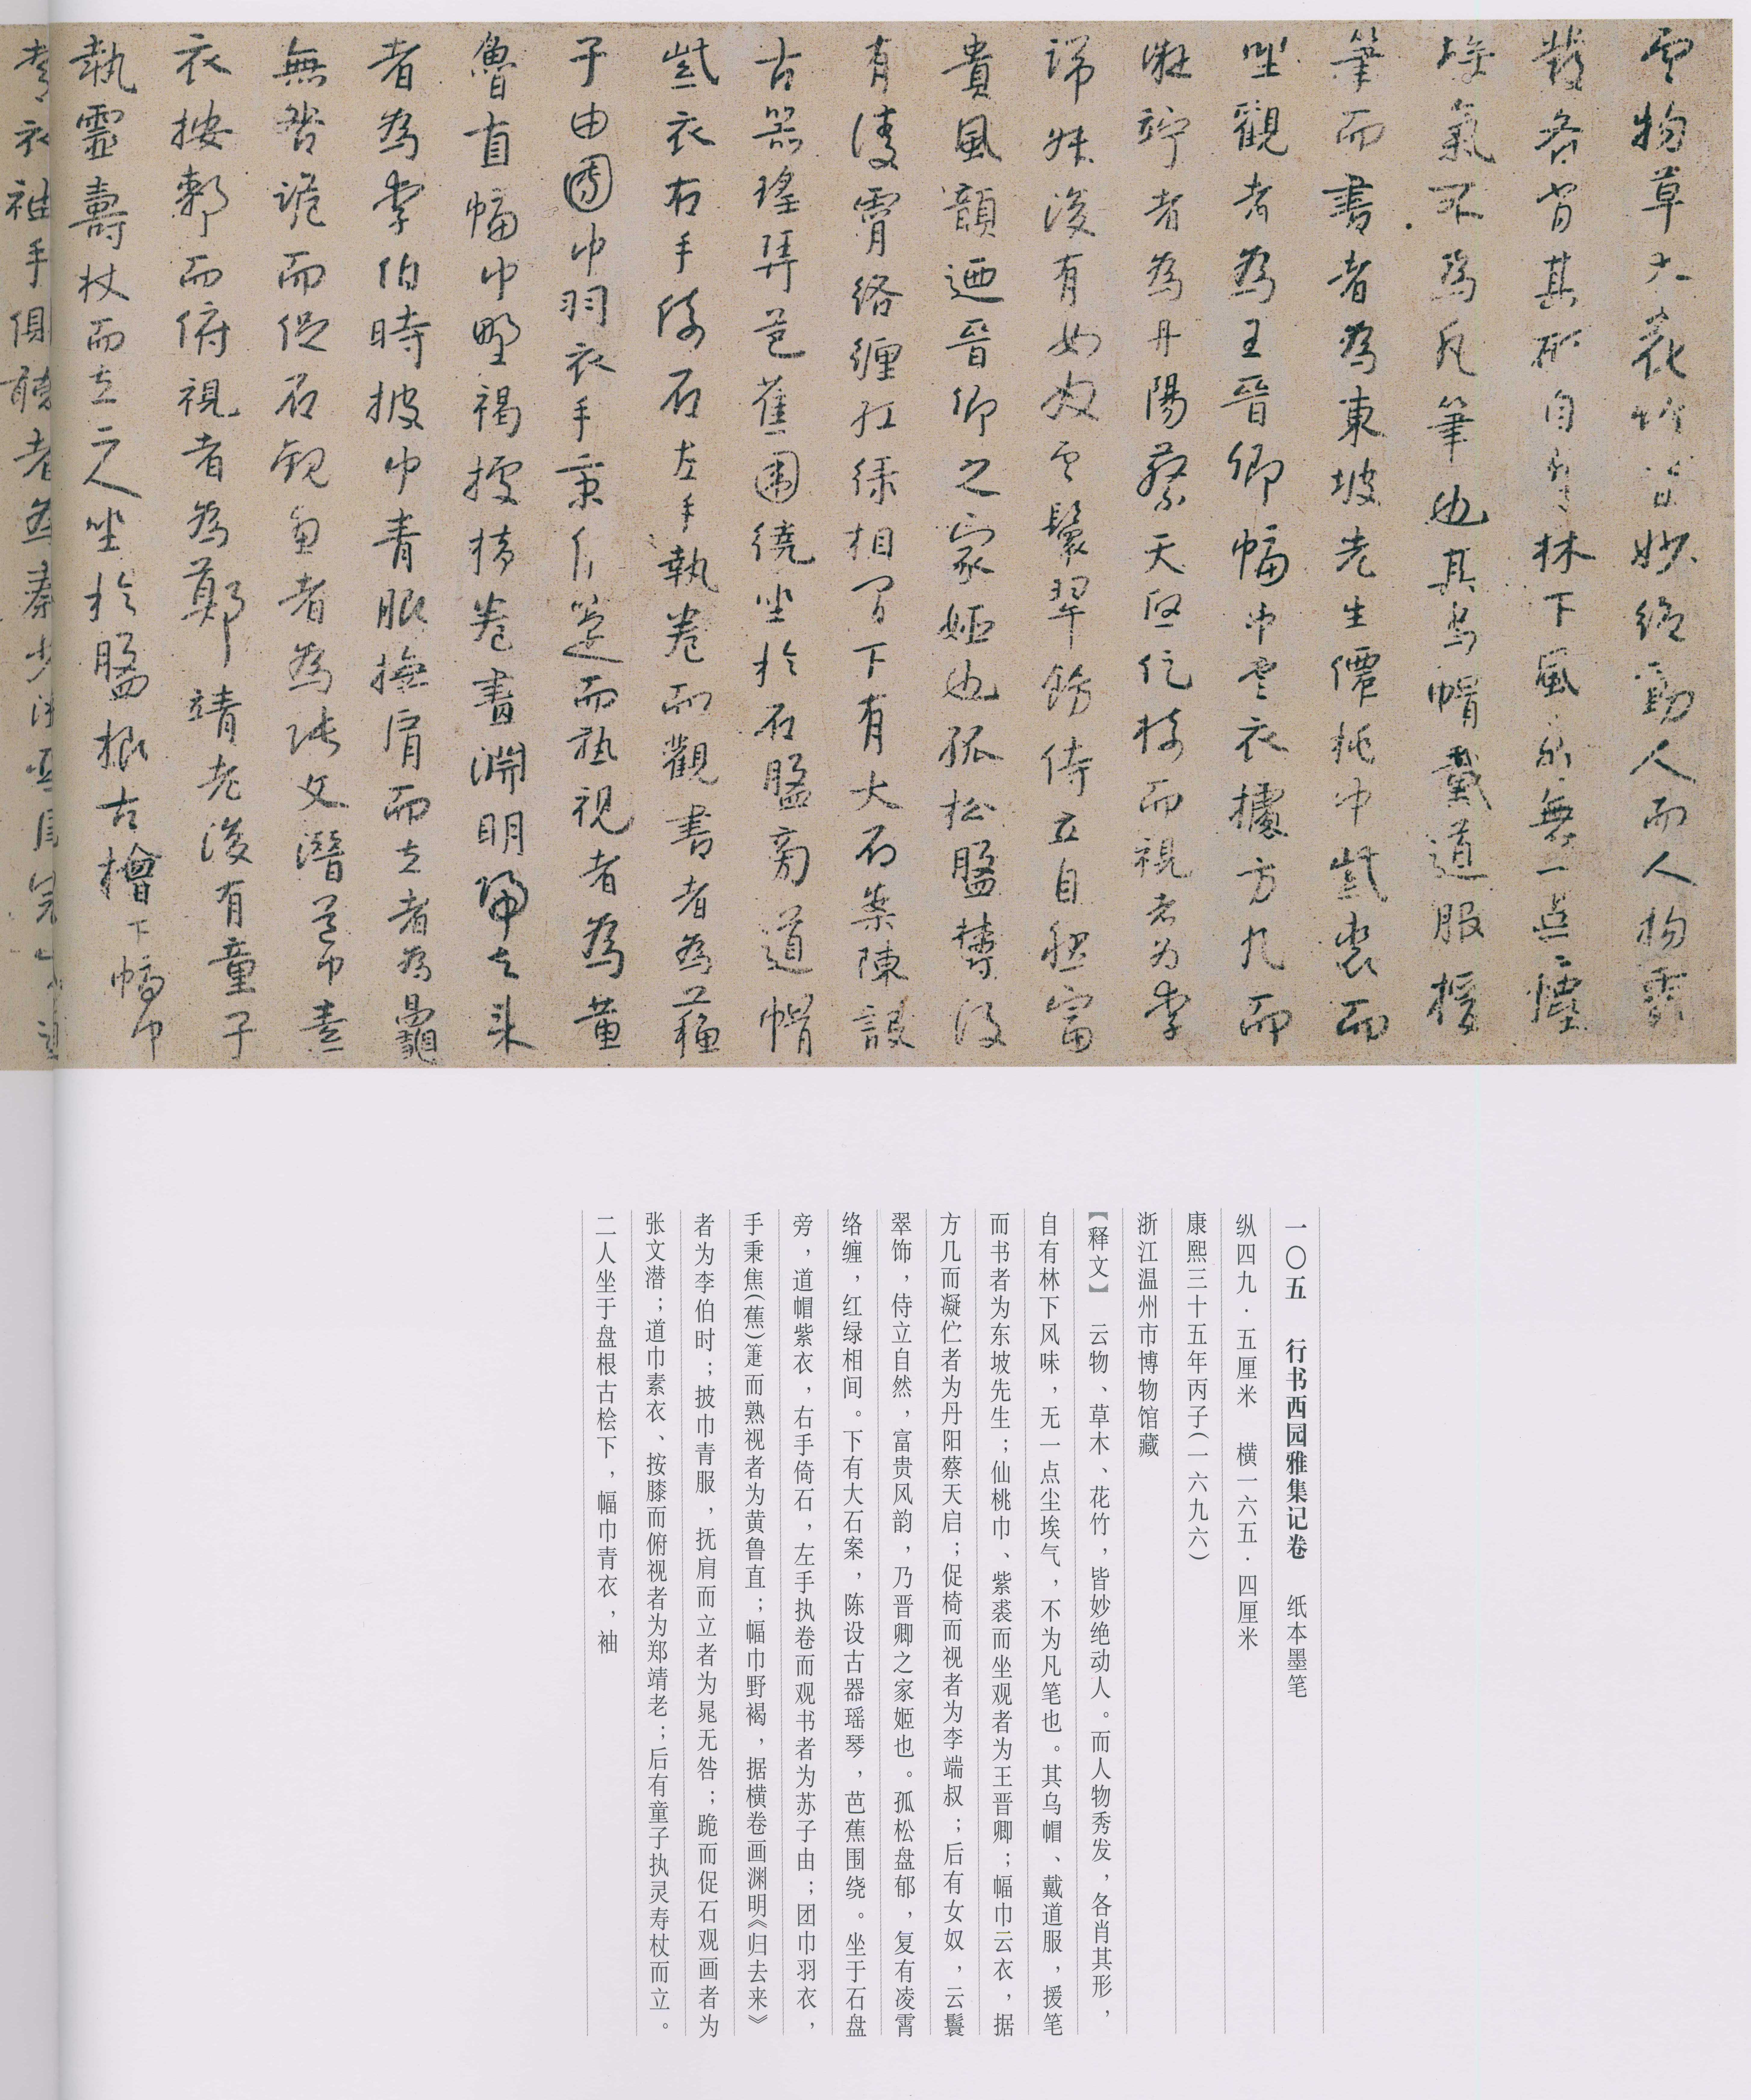 雲物草木花竹皆妙絶動人而人物秀
發各肖其形自有林下風味無一点塵
埃氣不為凡筆也其烏帽戴道服援
筆而書者為東坡先生僊桃巾紫裘而
坐觀者為王晉卿幅巾雲衣據方几而
凝竚者為丹陽蔡天啓促椅而視者为李
端叔後有女奴雲鬟翠飾侍立自然富
貴風韻迺晉卿之家姬也孤松盤欝復
有淩霄絡纏紅綠相間下有大石案陳設
古器瑤琴芭蕉圍繞坐於石盤旁道帽
紫衣右手倚石左手執卷而觀書者為蘓
子由團巾羽衣手秉焦箑而孰視者為黄
魯直幅巾野褐據橫卷畫淵明歸去来
者為李伯時披巾青服撫肩而立者為鼂
無咎跪而促石觀畫者為張文潛道巾素
衣按郟而俯視者為鄭靖老後有童子
執靈壽杖而立二人坐於盤根古檜下幅巾
青衣袖手側聽者為秦少游
一〇五 行书西园雅集记卷 纸本墨笔
纵四九·五厘米 横一六五·四厘米
康熙三十五年丙子(一六九六)
浙江温州市博物馆藏
【释文】 云物、草木、花竹，皆妙绝动人。而人物秀发，各肖其形，
自有林下风味，无一点尘埃气，不为凡笔也。其乌帽、戴道服，援笔
而书者为东坡先生；仙桃巾、紫裘而坐观者为王晋卿；幅巾云衣，据
方几而凝伫者为丹阳蔡天启；促椅而视者为李端叔；后有女奴，云鬟
翠饰，侍立自然，富贵风韵，乃晋卿之家姬也。孤松盘郁，复有凌霄
络缠，红绿相间。下有大石案，陈设古器瑶琴，芭蕉围绕。坐于石盘
旁，道帽紫衣，右手倚石，左手执卷而观书者为苏子由；团巾羽衣，
手秉焦(蕉)箑而熟视者为黄鲁直；幅巾野褐，据横卷画渊明《归去来》
者为李伯时；披巾青服，抚肩而立者为晁无咎；跪而促石观画者为
张文潜；道巾素衣、按膝而俯视者为郑靖老；后有童子执灵寿杖而立。
二人坐于盘根古桧下，幅巾青衣，袖